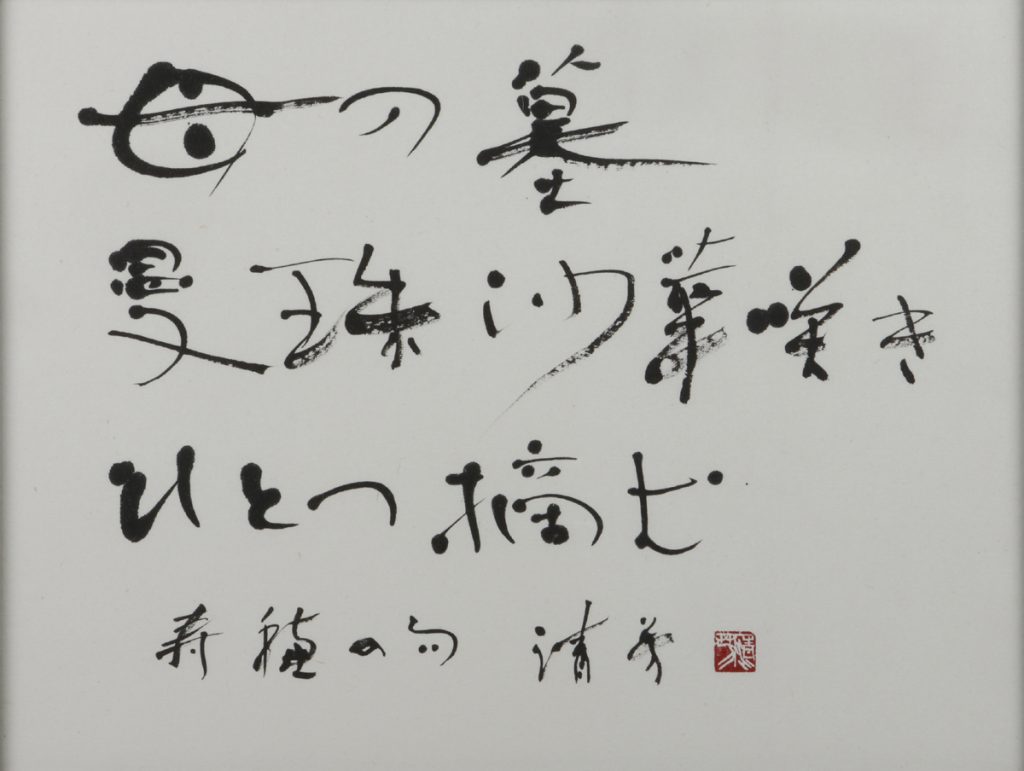 母の墓
曼珠沙華咲き
ひとつ摘む
寿穂の句 清芳